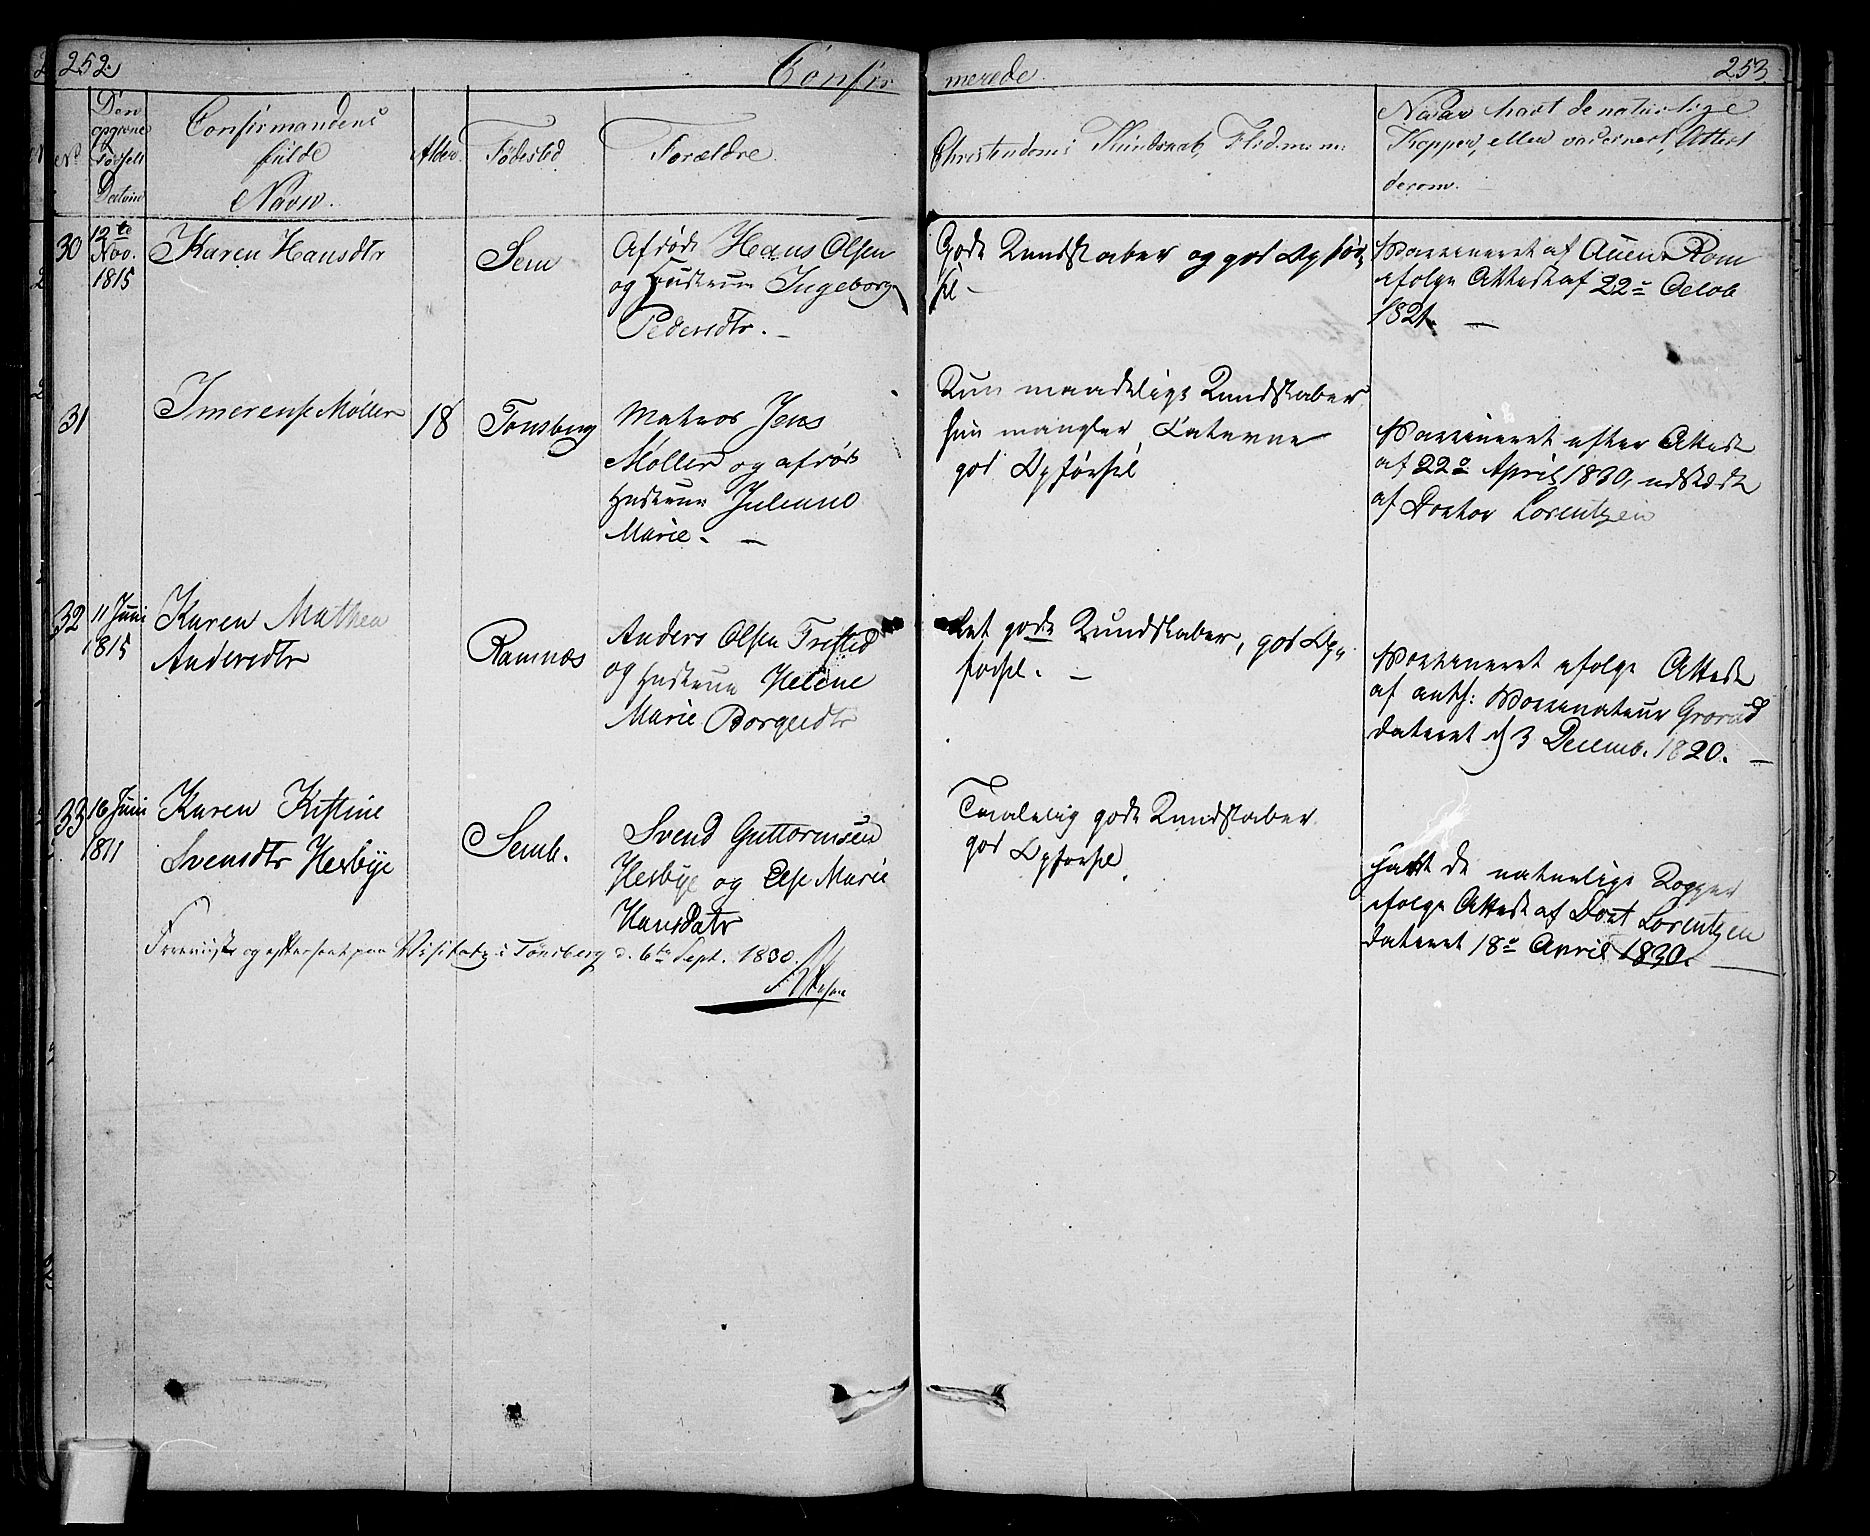 252.
Confir
merede.
253.
No.
Den
opgivne
Fødsels
Datum
Confirmandens
fulde
Navn.
Alder.
Fødested
Forældre.
Christendoms Kundskab, Flid m: m:
Naar havt de naturlige
Kopper, eller vaccineret, Attest
derom.
30
12te
Nov.
1815
Karen Hansdtr
Sem
Afdøde Hans Olsen
og Hustrue Ingeborg
Pedersdtr. -
Gode Kundskaber og god Opfør,
sel -
Vaccineret af
ifølge Attest af 22de Octob
1821. -
31
Imerense Møller
18
Tønsberg
Matros Jens
Møller og afdøde
Hustrue Juliane
Marie. -
Kun maadelige Kundskaber
hun mangler
god Opførsel
Vaccineret efter Attest
af 22de April 1830, udstædt
af Doctor Lorentzen
32
11 Juni
1815
Karen Mathea
Andersdtr
Ramnæs
Anders Olsen
og Hustrue Helene
Marie Borgersdtr
Ret gode Kundskaber, god Op,
førsel. -
Vaccineret ifølge Attest
af auth: Vaccinateur
dateret d 3 Decemb. 1820. -
33
16 Juni
1811
Karen Kistine
Svensdtr Hesbye
Semb.
Svend Guttormsen
Hesbye og Else Marie
Hansdatr
Taalelig gode Kundskaber
god Opførsel.
Havt de naturlige Kopper
ifølge Attest af Doct Lorentzen
dateret 18de April 1830. -
Foreviist og efterseet paa Visitatz i Tønsberg d. 6te Sept. 1830.